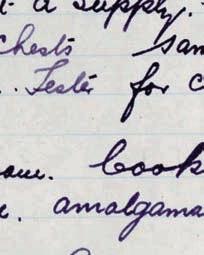 a supply.
chests sam
. Tester for c
am. book
. amalgama